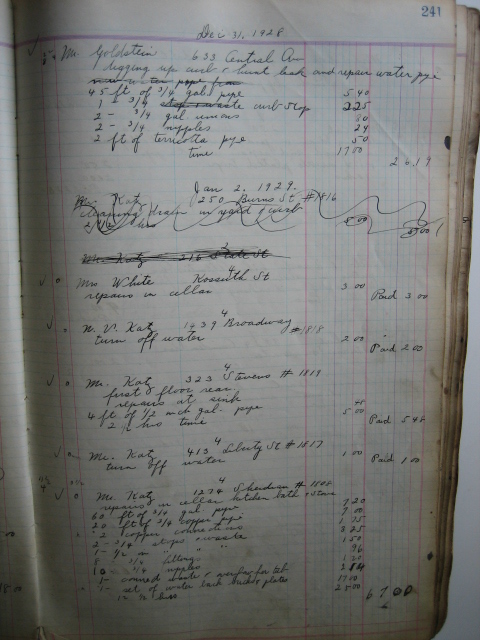 241
Dec 31, 1928
Mr. Goldstein 633 Central Av
digging up curb & hunt leak and repair water pipe
45 ft of 3/4 gal pipe 5 40
1 - 3/4 curb stop 2 25
2 - 3/4 gal unions 80
2 - 3/4 nipples 24
2 ft of terricotta pipe 50
time 17 00
26 19
Jan 2, 1929.
Mr. Katz 1250 Burns St #1816
cleaning drain in yard & curb
2 1/2 hrs 5 00
5 00
Mr. Katz 216 State St
3
4
Mrs White Kossuth St
repairs in cellar 3 00
Paid 3 00
4
N. V. Katz 1439 Broadway #1818
turn off water 2 00
Paid 2 00
4
Mr. Katz 323 Stevens #1819
first floor rear
repairs at sink
4 ft of 1/2 inch gal. pipe 48
2 1/2 hrs time 5 00
Paid 5 48
4
Mr. Katz 413 Liberty St #1817
turn off water 1 00
Paid 1 00
4
Mr. Katz 1274 Sheridan #1808
repairs in cellar kitchen bath & stove
60 ft of 3/4 gal pipe 7 20
20 ft of 3/4 copper pipe 7 00
2 copper connections 1 75
2 - 3/4 stops & waste 3 25
1 - 1/2 in " " 1 50
8 - 3/4 fittings 96
10 - 3/4 nipples 1 20
1 - waste & overflow for tub
1 - set of water back plates 17 00
hrs 25 00
67 00